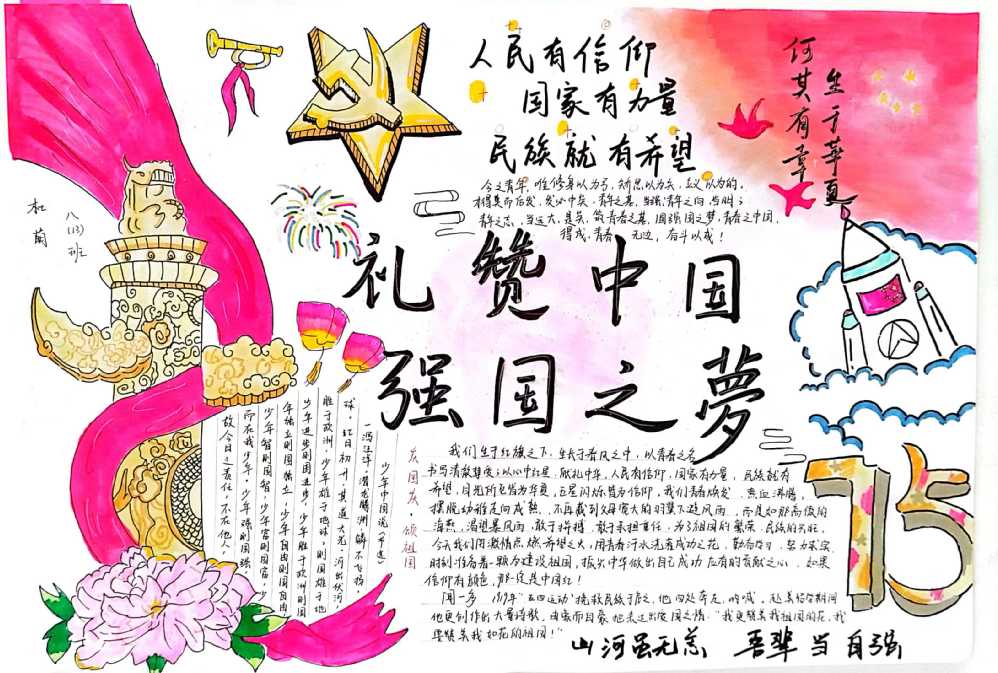 人民有信仰
国家有力量
民族就有希望
生于华夏
何其有幸
杜萌
八(13)班
今之青年，唯修身以为弓，矫思以为矢，立义以为的。
青年之志，当远大，是矣，筑青春之基，圆强国之梦，青春之中国，
无边，奋斗以成！
礼赞中国
强国之夢
庆国庆·颂祖国
少年中国说（节选）
故今日之责任，不在他人，
而在我少年。少年强则国强，
少年智则国智，少年富则国富，
少年独立则国独立，少年自由则国自由，
少年进步则国进步，少年胜于欧洲则国
胜于欧洲，少年雄于地球，则国雄于地
球。红日初升，其道大光。河出伏流，
一泻汪洋。潜龙腾渊，鳞爪飞扬。
75
我们生于红旗之下，生长于春风之中，以青春之名
书写清澈挚爱；以心中红星，献礼中华，人民有信仰，国家有力量，民族就有
希望，目光所至皆为华夏，五星闪烁皆为信仰，我们青春焕发，热血沸腾，
摆脱幼稚走向成熟，不再藏到父母宽大的羽翼下避风雨，而是如那高傲的
海燕，渴望暴风雨，敢于拼搏，敢于承担责任，为了祖国的繁荣、民族的兴旺，
今天我们用激情点燃希望之火，用青春汗水浇灌成功之花，勤奋学习，努力求实，
时刻准备着一颗为建设祖国，振兴中华做出自己成功应有的贡献之心，如果
信仰有颜色，那一定是中国红！
闻一多 1919年“五四运动”挽救民族于危亡，他四处奔走
他更创作出大量诗歌，
“我更赞美我祖国的花，我
要赞美我如花的祖国！”
山河虽无恙 吾辈当自强